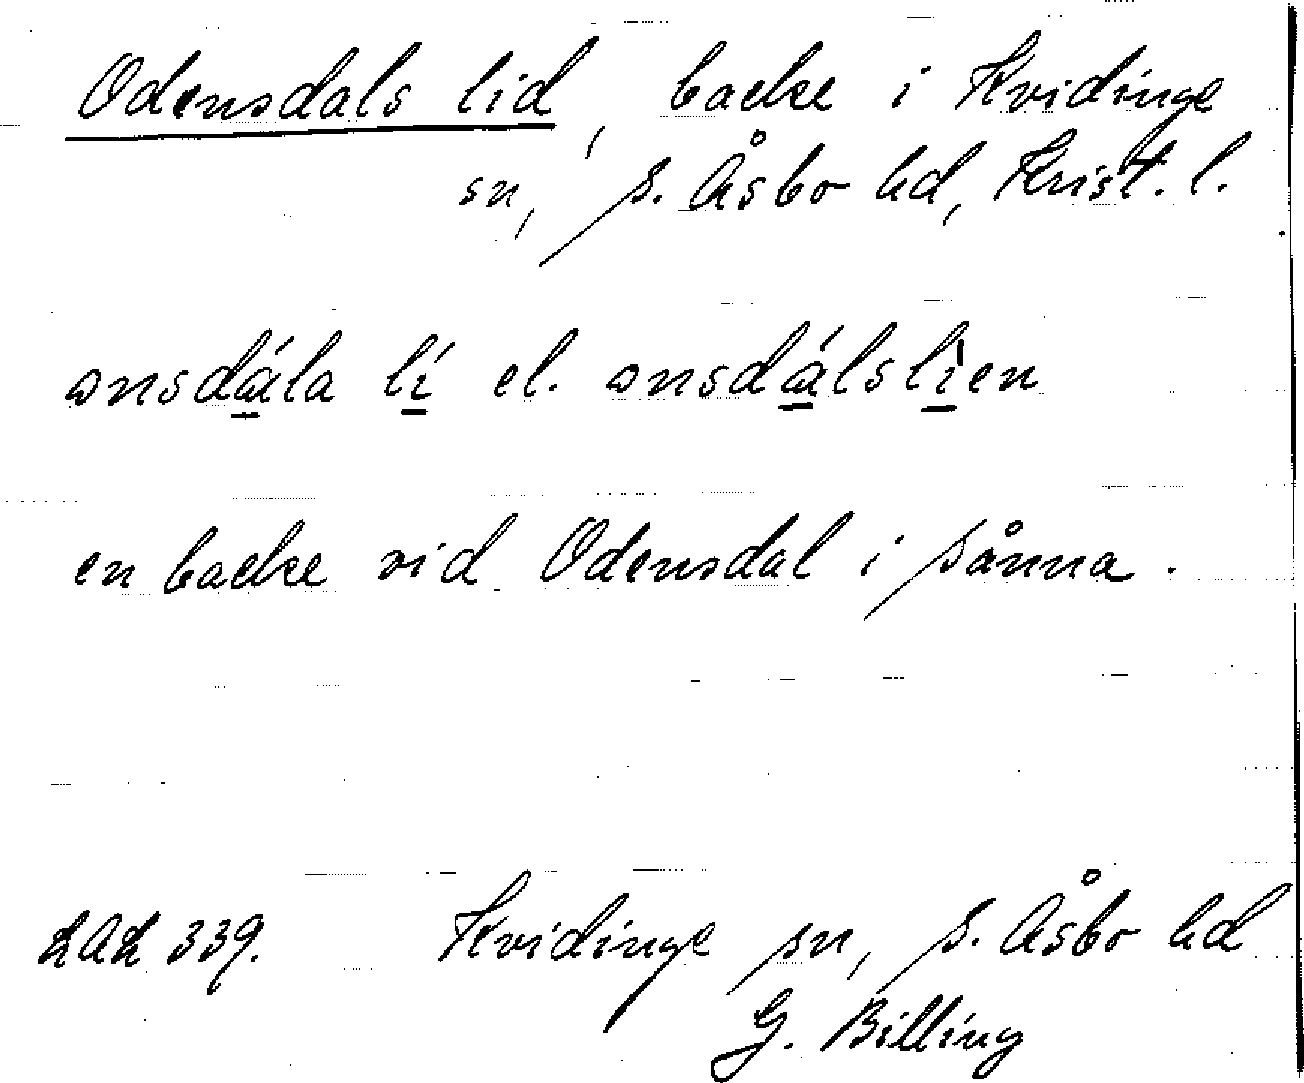 Odensdals lid, backe i Kvidinge
sn, S. Åsbo hd, Krist. l.
onsdála lí el. onsdálslìen
en backe vid Odensdal i Sånna.
LAL 339. Kvidinge sn, S. Åsbo hd
G. Billing